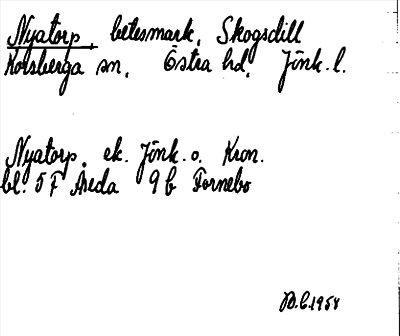 Nyatorp, betesmark, Skogsdill
Korsberga sn, Östra hd, Jönk. l.
Nyatorp, ek. Jönk. o. Kron.
bl. 5 F Åseda 9 b Fornebo
B.C. 1954